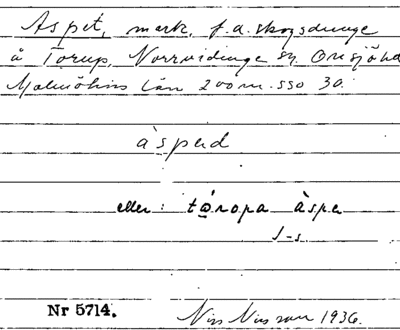 Aspet, mark, f.d. skogsdunge
å Torup, Norrvidinge sn, Onsjö hd
Malmöhus län 200 m. sso 30.
àsped
eller: tá̱ropa àspe
J-s.
Nr 5714. Nils Nilsson 1936.